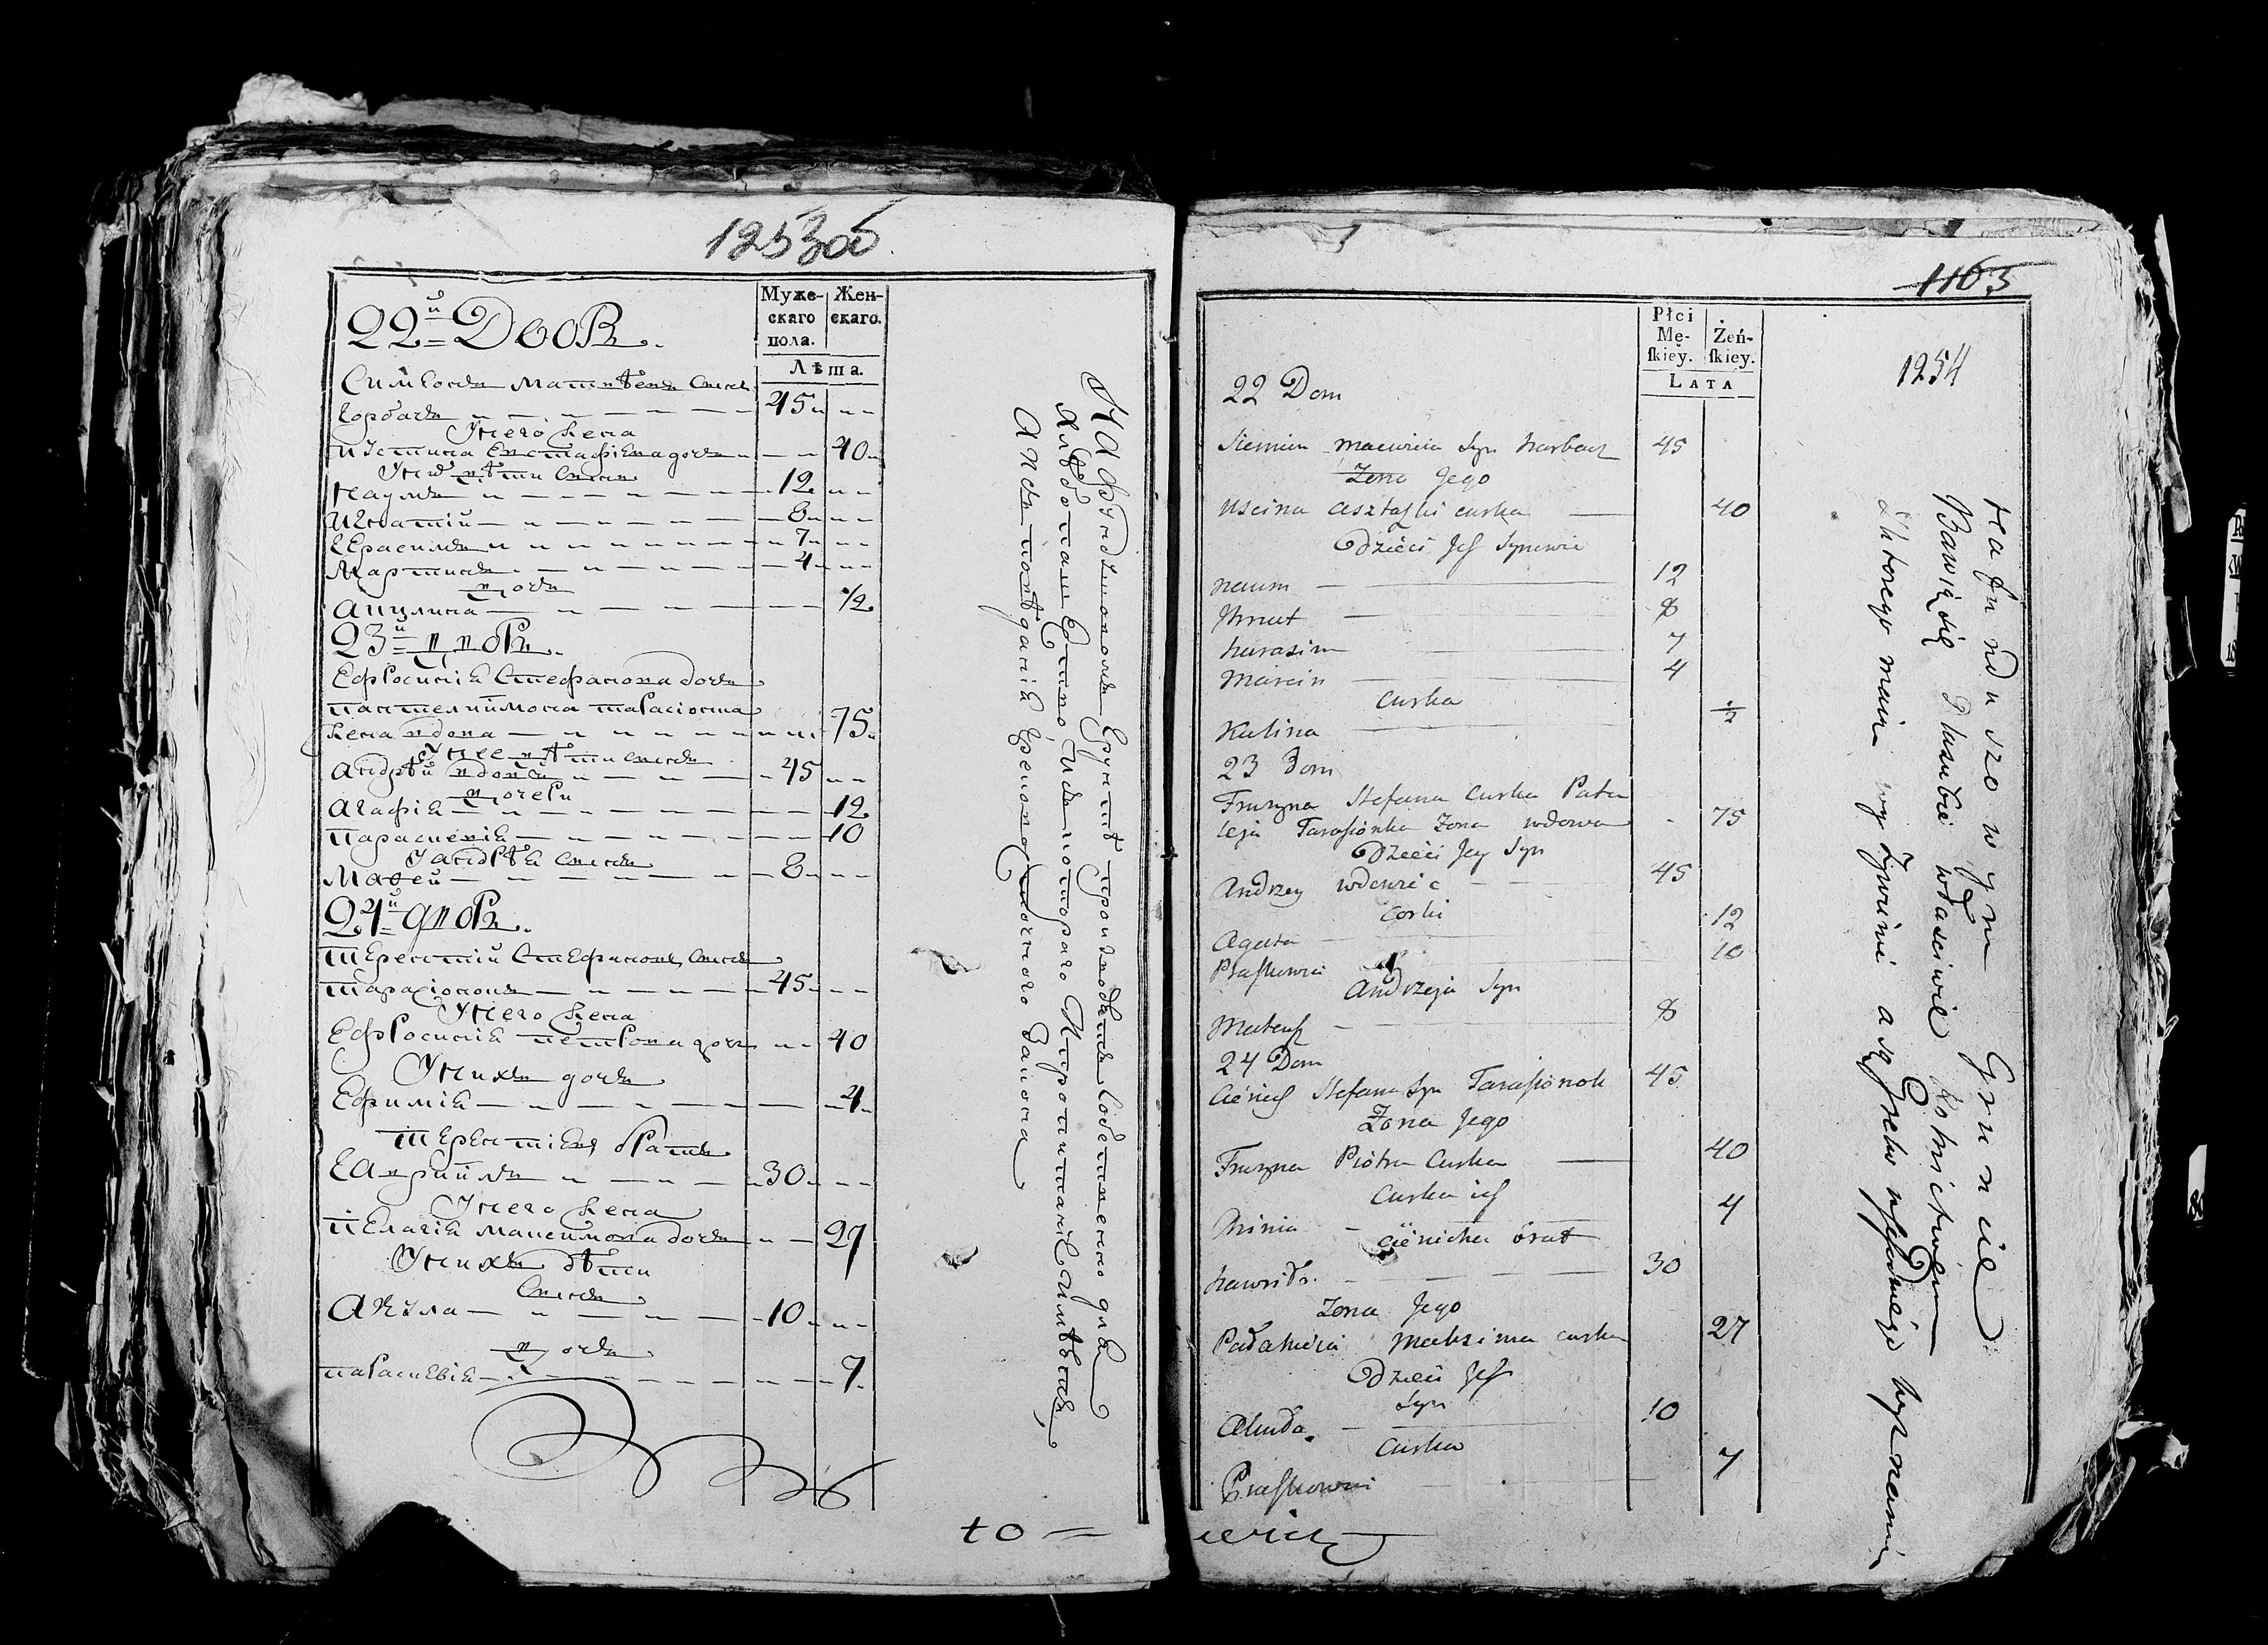 1253об
22й Дворъ.
Муже-
скаго
пола.
Жен-
скаго.
Лѣта.
Симеонъ Матвѣевъ Сынъ
Горбачъ 45
Унего Жена
Устина Евстафіева дочь 40
Унихъ дѣти Сыны
Наумъ 12
Игнатій 8
Герасимъ 7
Мартинъ 4
дочь
Акулина 1/2
23й дворъ.
Ефросинія Стефанова дочь
Пантелиймона Тарасіонка
Жена вдова 75
Унее дѣти сынъ
Андрѣй вдовецъ 45
дочери
Агафія 12
Параскевія 10
У андрѣя сынъ
Мафей 8
24й дворъ.
Терентий Стефановъ Сынъ
Тарасіонокъ 45
Унего Жена
Ефросинія Петрова дочь 40
Унихъ дочь
Ефимія 4
Терентіевъ братъ
Гавриилъ 30
Унего Жена
Пелагія Максимова дочь 27
Унихъ дѣти
Сынъ
Акула 10
дочь
Параскевія 7
На Фундушовомъ Грунтѣ
to =
1163
1254
Płci
Mę-
skiey.
Żeń-
skiey.
LATA
22 Dom
Siemion Maciwieia Syn Harbacz 45
Żona Jego
Uscina Asztafki curka 40
Dzieci Jch Synowie
Naum 12
Jhnat 8
Harasim 7
Marcin 4
Curka
Kulina 1/2
23 Dom
Fruzyna Stefana Curka Pata
leja Tarasionka Żona wdowa 75
Dzieci Jey Syn
Andrzey wdowiec 45
Corki
Agata 12
Praskowia 10
Andrzeja Syn
Mateusz 8
24 Dom
Cienich Stefana Syn Tarasionok 45
Żona Jego
Fruzyna Piotra Curka 40
Curka ich
Chimia 4
Cienicha brat
Hawriło 30
Żona Jego
Pałahieia Maksima curka 27
Dzieci Jch
Syn
Akuła 10
Curka
Praskowia 7
Na funduszowym Gruncie
Bawią się Dla siebie właściwie Rolnictwem
z którego maią wyżywienie a są Greko
wicz